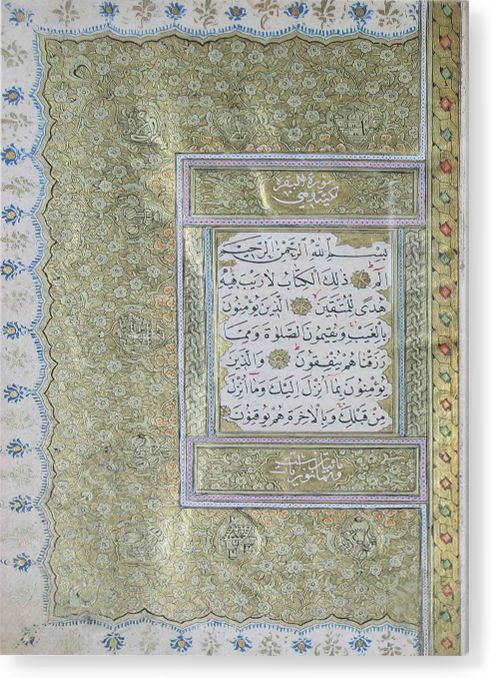 سورة البقرة
بِسْمِ اللهِ الرَّحْمٰنِ الرَّحِيمِ
الٓمٓ ذٰلِكَ الْكِتَابُ لَا رَيْبَ فِيهِ
هُدًى لِلْمُتَّقِينَ الَّذِينَ يُؤْمِنُونَ
بِالْغَيْبِ وَيُقِيمُونَ الصَّلٰوةَ وَمِمَّا
رَزَقْنَاهُمْ يُنْفِقُونَ وَالَّذِينَ
يُؤْمِنُونَ بِمَا أُنْزِلَ إِلَيْكَ وَمَا أُنْزِلَ
مِنْ قَبْلِكَ وَبِالْاٰخِرَةِ هُمْ يُوقِنُونَ